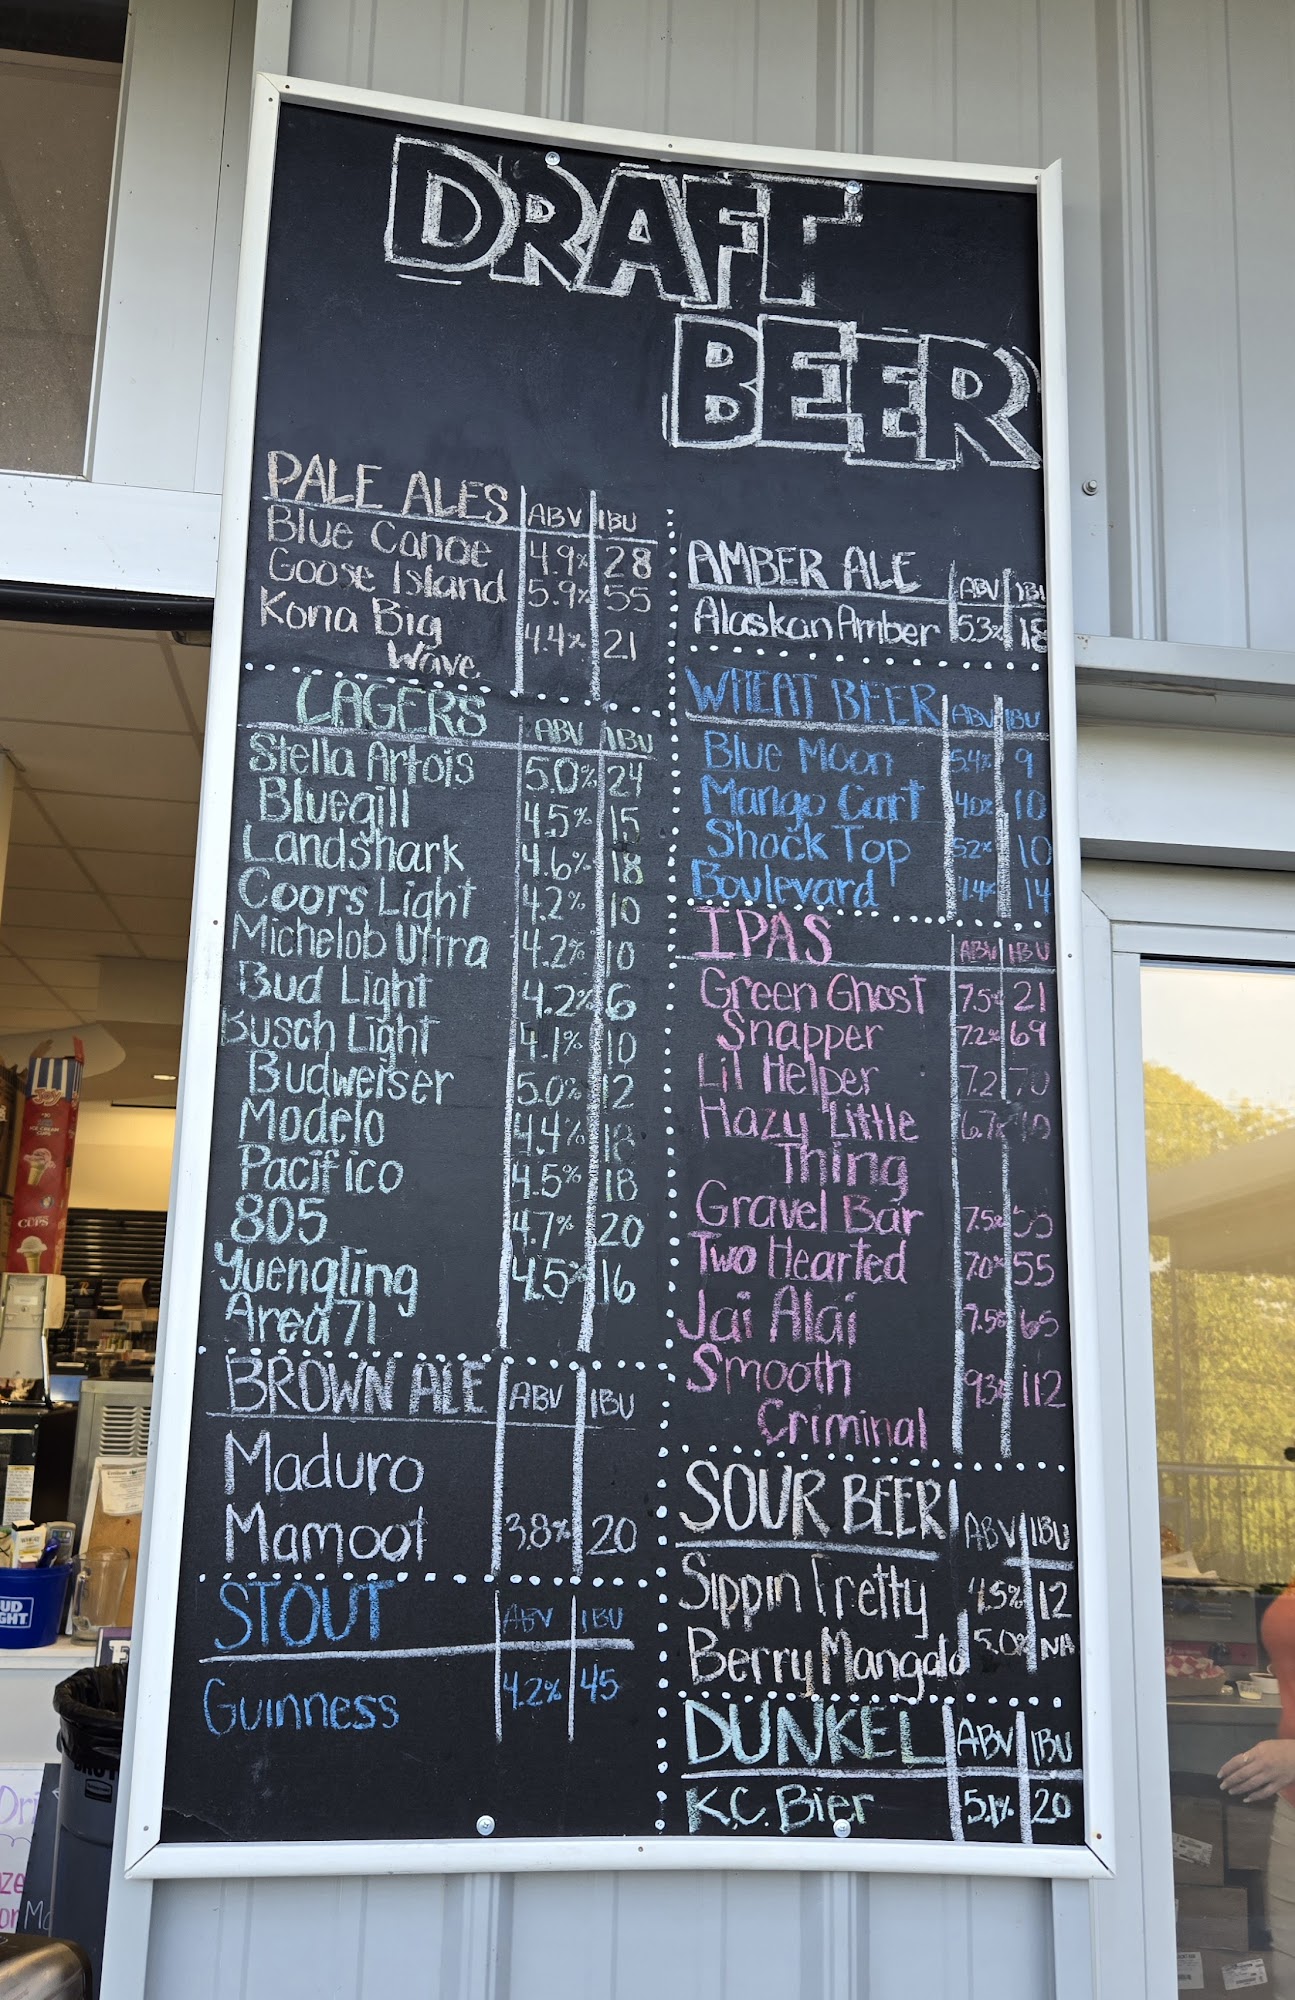 DRAFT
BEER
PALE ALES ABV IBU
Blue Canoe 4.9% 28
Goose Island 5.9% 55
Kona Big
Wave 4.4% 21
LAGERS ABV IBU
Stella Artois 5.0% 24
Bluegill 4.5% 15
Landshark 4.6% 18
Coors Light 4.2% 10
Michelob Ultra 4.2% 10
Bud Light 4.2% 6
Busch Light 4.1% 10
Budweiser 5.0% 12
Modelo 4.4% 18
Pacifico 4.5% 18
805 4.7% 20
Yuengling 4.5% 16
Area 71
BROWN ALE ABV IBU
Maduro
Mamoot 3.8% 20
STOUT ABV IBU
Guinness 4.2% 45
AMBER ALE ABV IBU
Alaskan Amber 5.3% 18
WHEAT BEER ABV IBU
Blue Moon 5.4% 9
Mango Cart 4.0% 10
Shock Top 5.2% 10
Boulevard 4.4% 14
IPAS ABV IBU
Green Ghost 7.5% 21
Snapper 7.2% 69
Lil Helper 7.2 70
Hazy Little 6.7%
Thing
Gravel Bar 7.5% 55
Two Hearted 7.0% 55
Jai Alai 7.5% 65
Smooth 9.3% 112
Criminal
SOUR BEER ABV IBU
Sippin Pretty 4.5% 12
Berry Mangold 5.0% NA
DUNKEL ABV IBU
K.C. Bier 5.1% 20
JOY
ICE CREAM
CUPS
CUPS